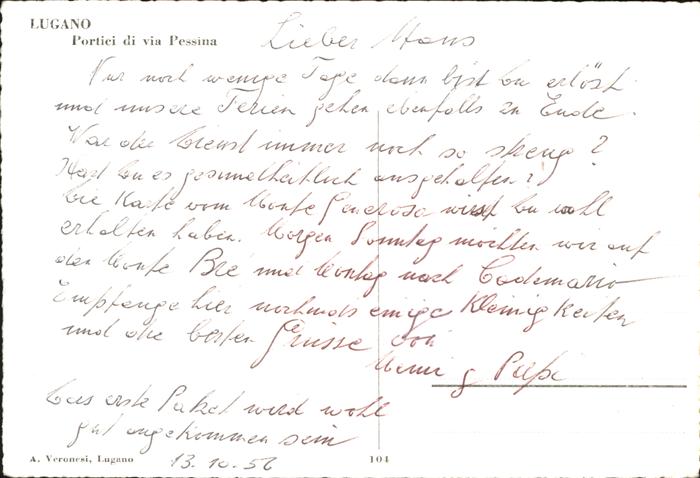 LUGANO
Portici di via Pessina
Lieber Hans
Nur noch wenige Tage dann bist Du erlöst
und unsere Ferien gehen ebenfalls zu Ende.
War der Dienst immer noch so streng?
Hast Du es gesundheitlich ausgehalten?
Die Karte vom Monte Generoso wirst Du wohl
erhalten haben. Morgen Sonntag möchten wir auf
den Monte Bré und Montag nach Cademario
Empfange hier nochmals einige Kleinigkeiten
und die besten Grüsse von
Mami & Papi
Das erste Paket wird wohl
gut angekommen sein
A. Veronesi, Lugano
13.10.56
104